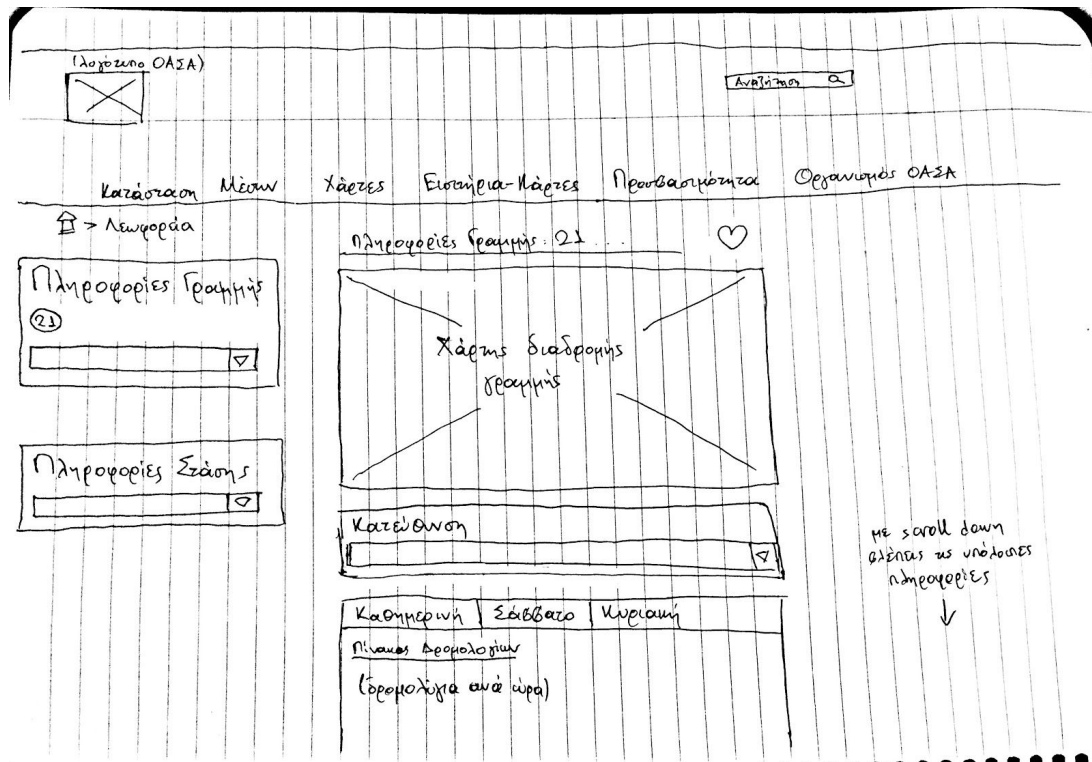 (λογότυπο ΟΑΣΑ)
Αναζήτηση
Κατάσταση Μέσων Χάρτες Εισιτήρια-Κάρτες Προσβασιμότητα Οργανισμός ΟΑΣΑ
> Λεωφορεία
Πληροφορίες Γραμμής
21
Πληροφορίες Στάσης
Πληροφορίες Γραμμής: 21 ...
Χάρτης διαδρομής
γραμμής
Κατεύθυνση
Καθημερινή Σάββατο Κυριακή
Πίνακας Δρομολογίων
(δρομολόγια ανά ώρα)
με scroll down
βλέπεις τις υπόλοιπες
πληροφορίες